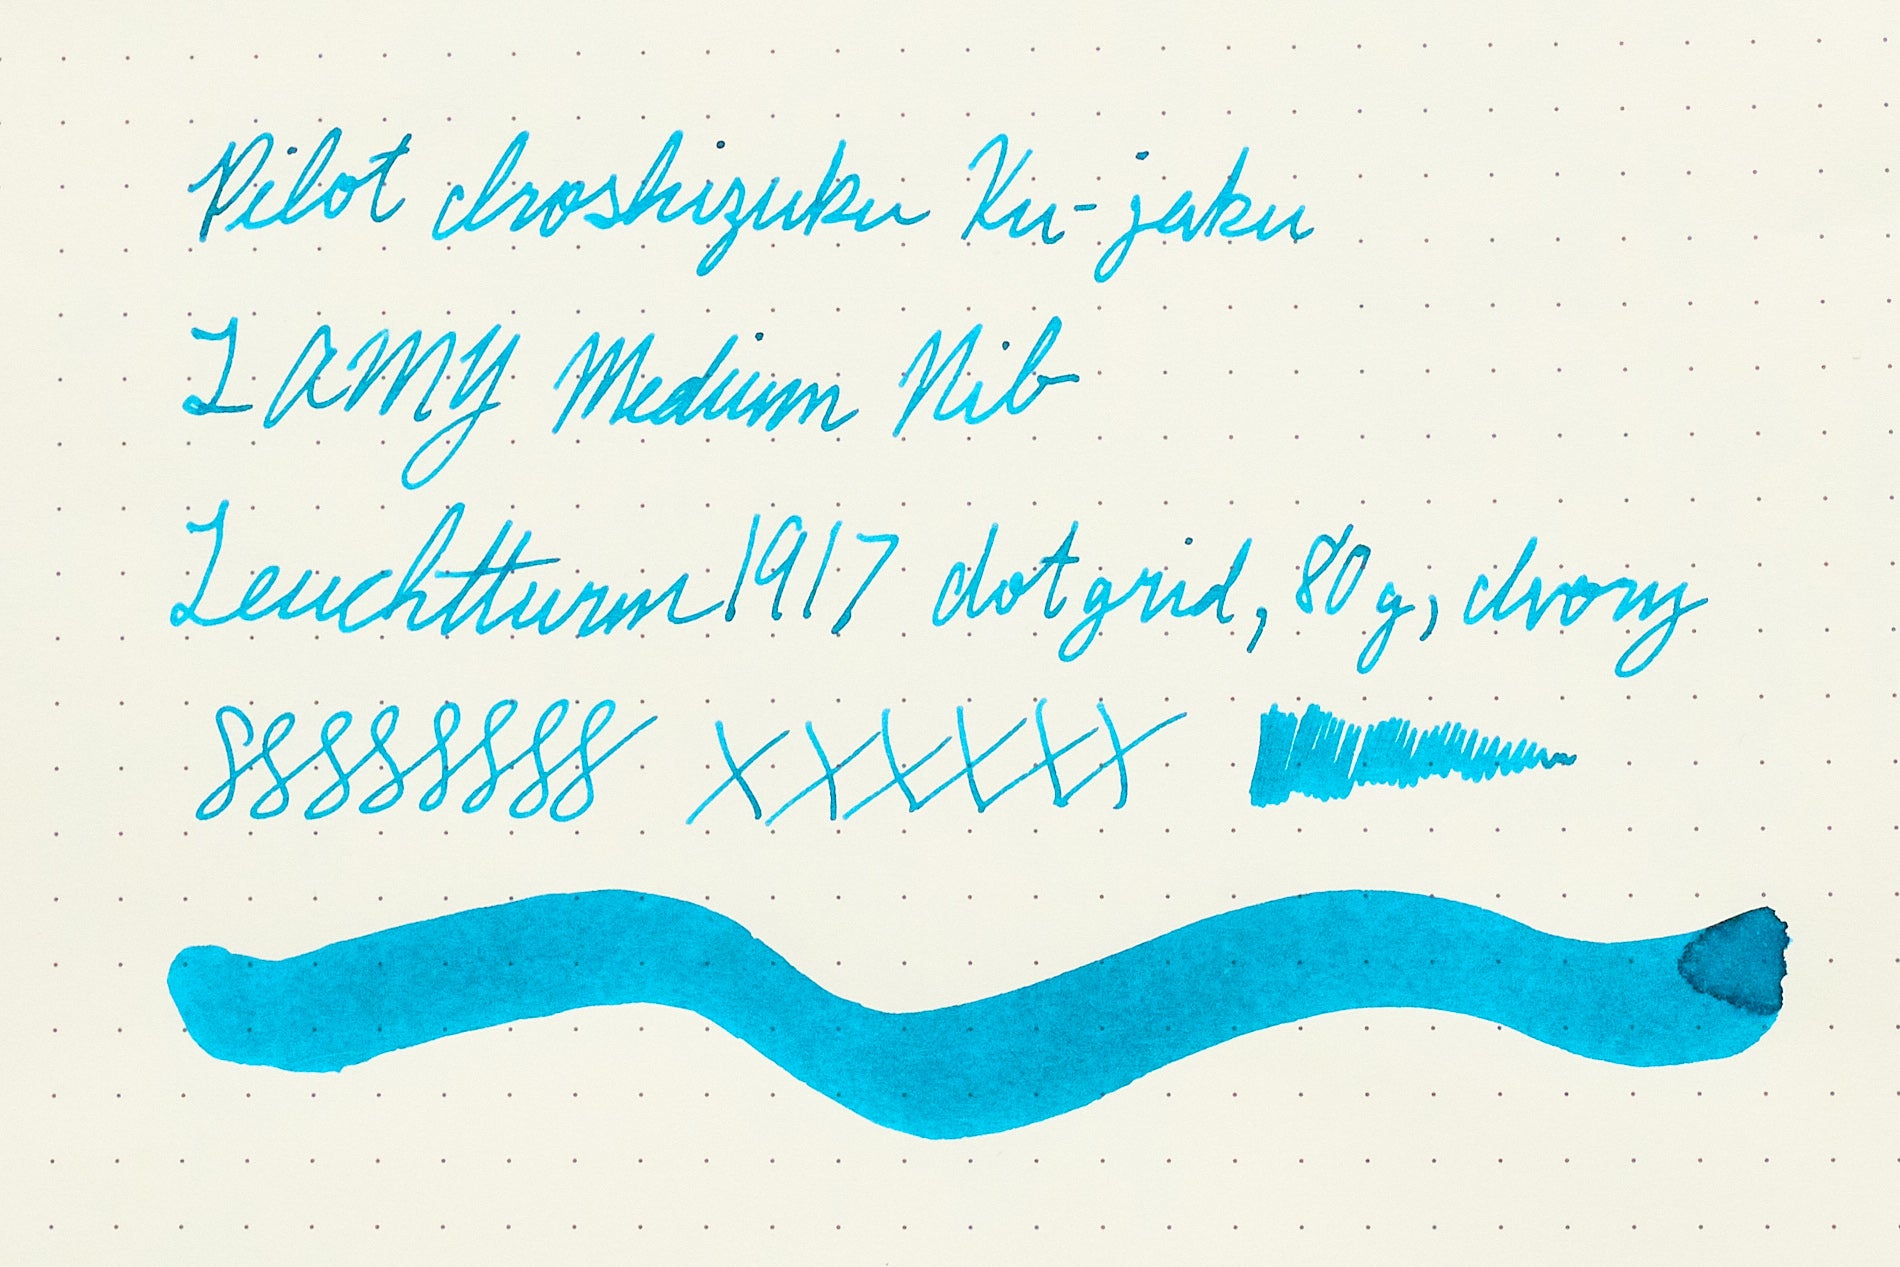 Pilot Iroshizuku Ku-jaku
LAMY Medium Nib
Leuchtturm1917 dot grid, 80g, Ivory